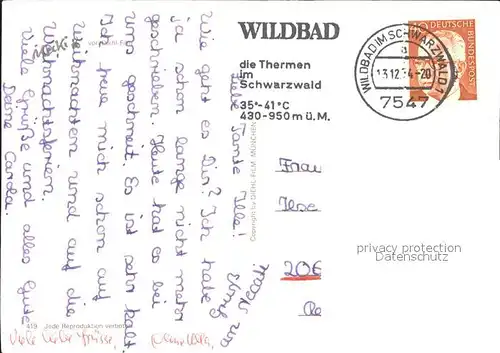 WILDBAD
die Thermen
im
Schwarzwald
35°-41°C
430-950 m ü. M.
WILDBAD IM SCHWARZWALD 1
a
13.12.74-20
7547
DEUTSCHE BUNDESPOST
Liebe Tante Ilse!
Wie geht es Dir? Ich habe
ja schon lange nicht mehr
geschrieben. Heute hat es bei
uns geschneit. Es ist sehr kalt.
Ich freue mich schon auf
Weihnachten und auf die
Weihnachtsferien.
Viele Grüße und alles Gute
Deine Carola.
Gruß
an
Mecki
Frau
Ilse
206
privacy protection
Datenschutz
Copyright by DIEHL-FILM, MÜNCHEN
419 Jede Reproduktion verboten
Viele liebe Grüsse,